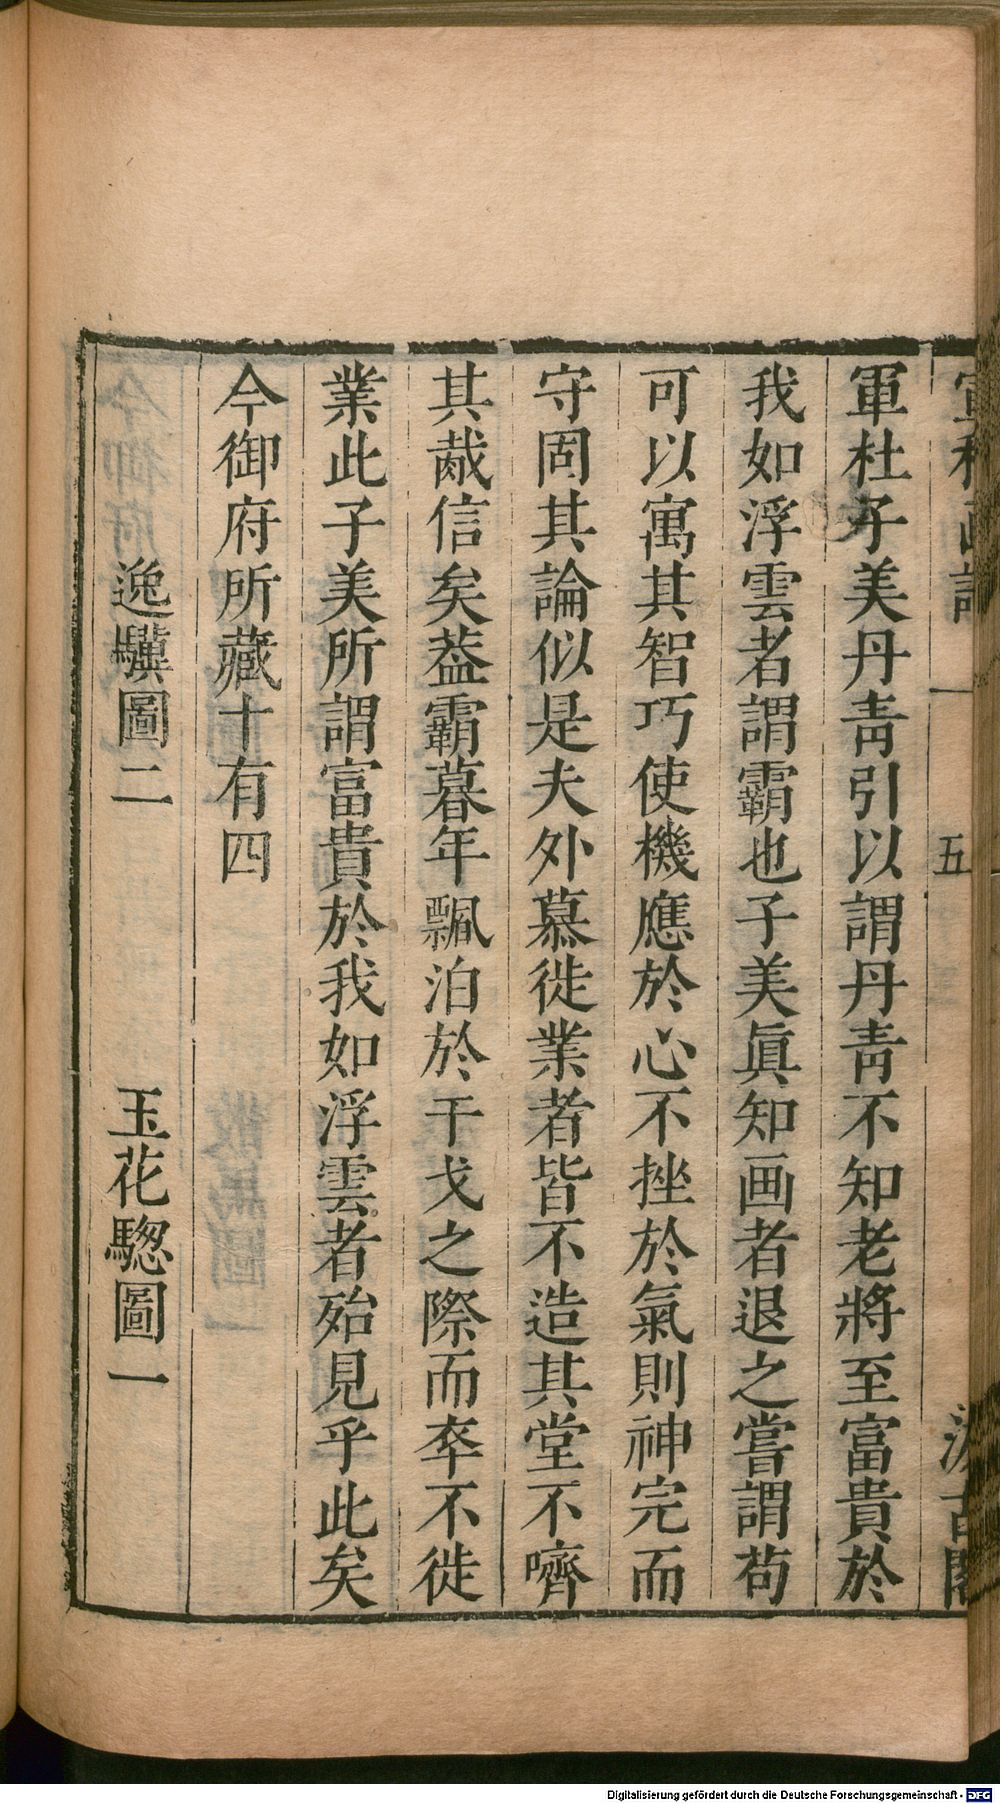 五
軍杜子美丹青引以謂丹青不知老將至富貴於
我如浮雲者謂霸也子美眞知画者退之嘗謂苟
可以寓其智巧使機應於心不挫於氣則神完而
守固其論似是夫外慕徙業者皆不造其堂不嚌
其胾信矣葢霸暮年飄泊於干戈之際而卒不徙
業此子美所謂富貴於我如浮雲者殆見乎此矣
今御府所藏十有四
逸驥圖二 玉花驄圖一
Digitalisierung gefördert durch die Deutsche Forschungsgemeinschaft - DFG